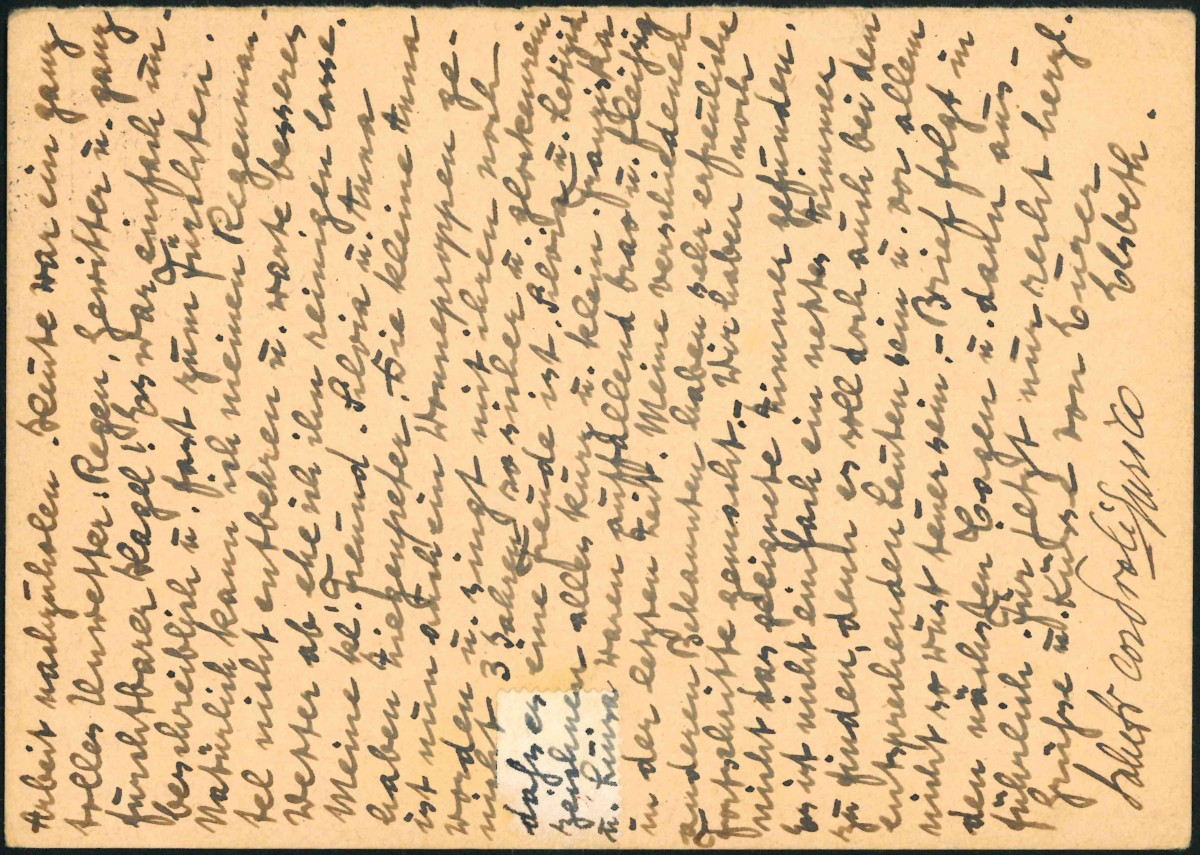 Arbeit nachzuholen. Heute war ein ganz
tolles Unwetter: Regen, Gewitter u. ganz
furchtbarer Hagel! Es war einfach un-
beschreiblich u. fast zum Fürchten.
Natürlich kann ich meinen Regenman-
tel nicht entbehren u. warte besseres
Wetter ab, ehe ich ihn reinigen lasse.
Meine kl. Freund. Silvia u. Anna
haben Ziegenpeter. Die kleine Anna
ist nun auch ein Wonneproppen ge-
worden u. singt mit ihren noch
nicht 3 Jahren so sicher u. glockenrein
dass es eine Freude ist. Silvia u. Letizia
zeichnen alles kurz u. klein. Franziska
u. Luisa waren auffallend brav u. fleißig
in der letzten Zeit. Meine verschiedenen
anderen Bekannten haben sehr erfreuliche
Fortschritte gemacht. – Wir haben noch
nicht das geeignete Zimmer gefunden.
Es ist nicht einfach ein nettes Zimmer
zu finden, denn es soll doch auch bei den
entsprechenden Leuten sein u. vor allem
nicht so wüst teuer sein. – Brief folgt in
den nächsten Tagen u. dann aus-
führlich. Für jetzt nur recht herzl.
Grüße u. Küsse von Eurer
Elsbeth.
Saluti cordiali